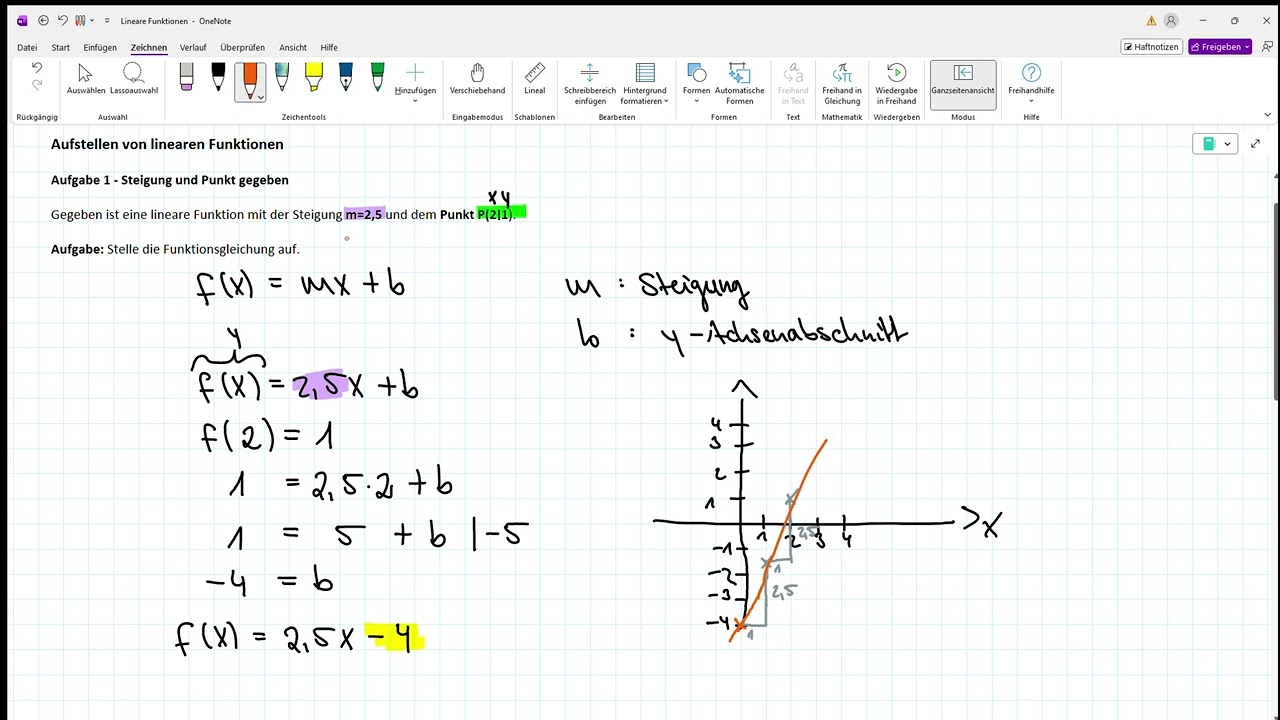 Lineare Funktionen - OneNote
Datei Start Einfügen Zeichnen Verlauf Überprüfen Ansicht Hilfe Haftnotizen Freigeben
Auswählen Lassoauswahl Hinzufügen Verschiebehand Lineal Schreibbereich einfügen Hintergrund formatieren Formen Automatische Formen Freihand in Text Freihand in Gleichung Wiedergabe in Freihand Ganzseitenansicht Freihandhilfe
Rückgängig Auswahl Zeichentools Eingabemodus Schablonen Bearbeiten Formen Text Mathematik Wiedergeben Modus Hilfe
Aufstellen von linearen Funktionen
Aufgabe 1 - Steigung und Punkt gegeben
x y
Gegeben ist eine lineare Funktion mit der Steigung m=2,5 und dem Punkt P(2|1).
Aufgabe: Stelle die Funktionsgleichung auf.
f(x) = mx + b
m : Steigung
b : y-Achsenabschnitt
y
f(x) = 2,5x + b
f(2) = 1
1 = 2,5·2 + b
1 = 5 + b |-5
-4 = b
f(x) = 2,5x - 4
4
3
2
1
1 2 3 4 x
2,5
-1
1
-2
-3
2,5
-4
1